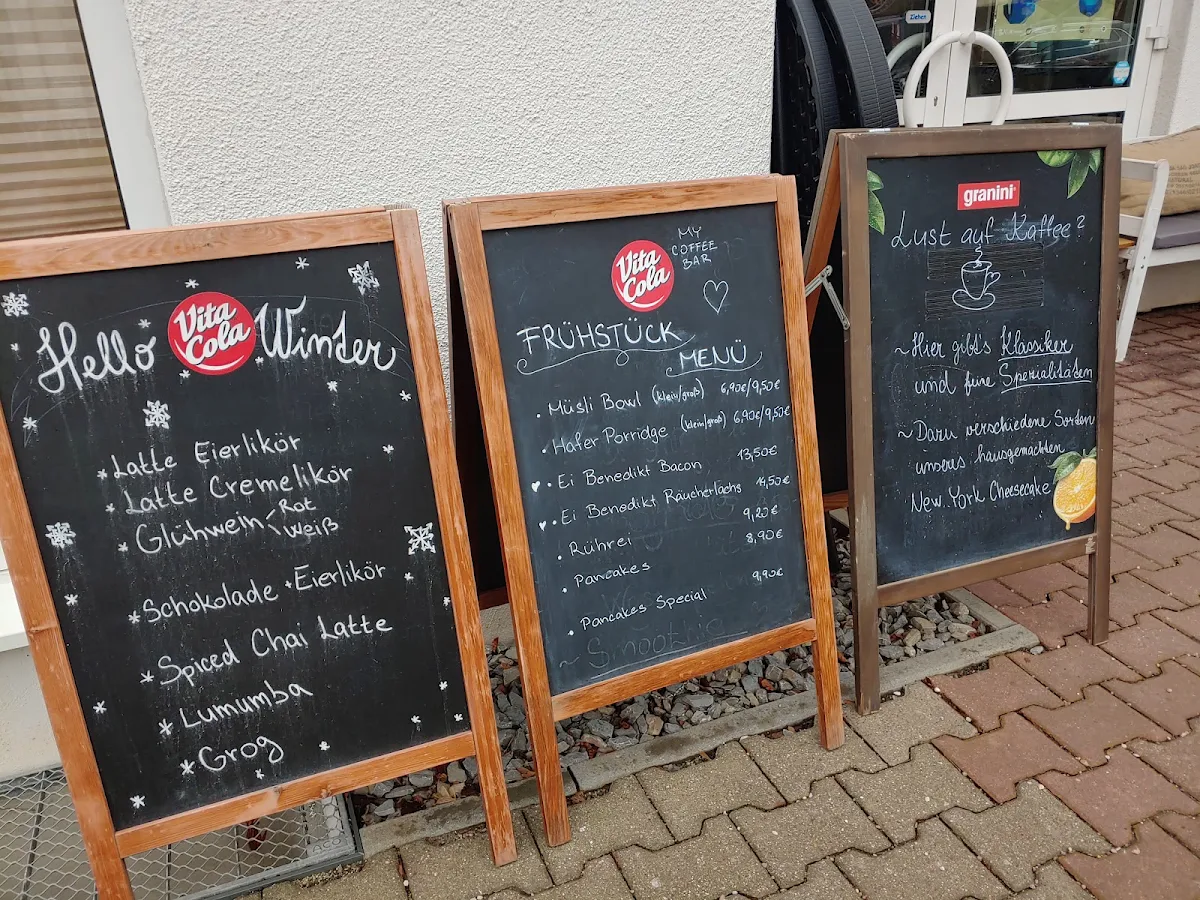 Hello Vita Cola Winter
*Latte Eierlikör
*Latte Cremelikör
*Glühwein Rot
Weiß
*Schokolade + Eierlikör
*Spiced Chai Latte
*Lumumba
*Grog
Vita
Cola
MY
COFFEE
BAR
FRÜHSTÜCK
MENÜ
• Müsli Bowl (klein/groß) 6,90€/9,50€
• Hafer Porridge (klein/groß) 6,90€/9,50€
• Ei Benedikt Bacon 13,50€
• Ei Benedikt Räucherlachs 14,50€
• Rührei 9,20€
• Pancakes 8,90€
• Pancakes Special 9,90€
~ Smoothie
granini
Lust auf Kaffee?
~Hier gibt's Klassiker
und feine Spezialitäten
~Dazu verschiedene Sorten
unseres hausgemachten
New York Cheesecake
Ziehen